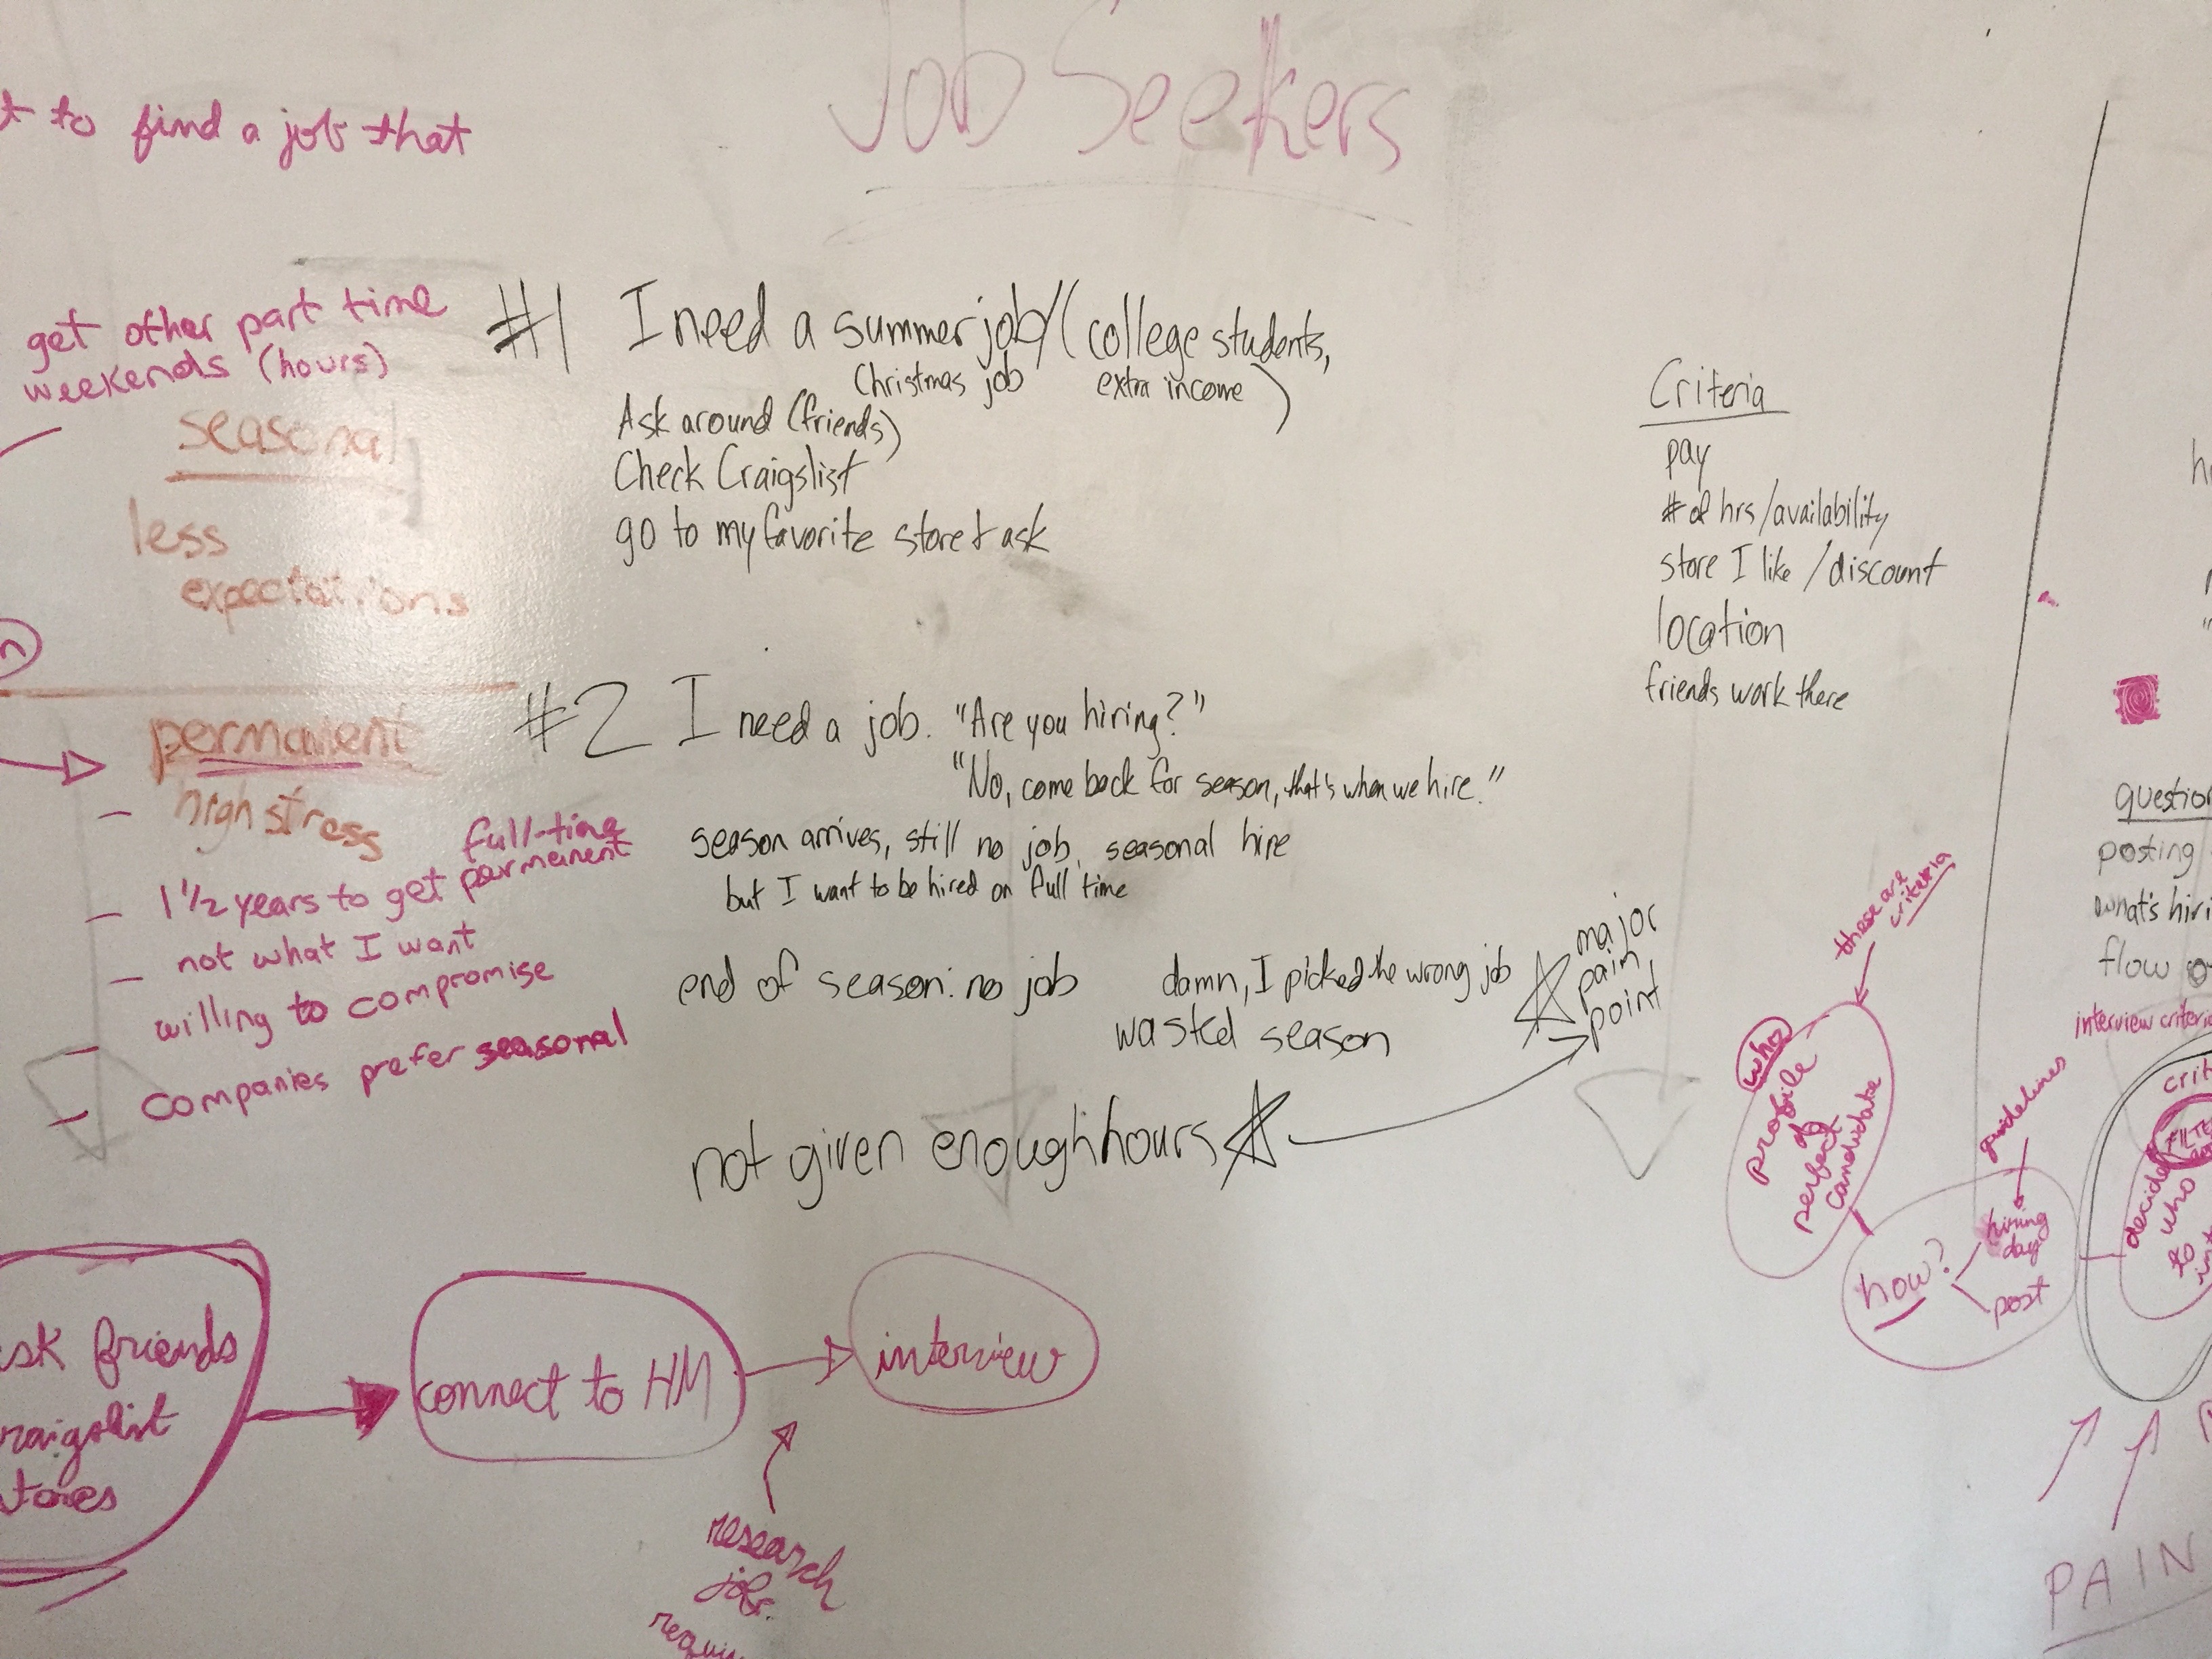 Job Seekers
to find a job that
get other part time
weekends (hours)
seasonal
less
expectations
permanent
high stress
full-time
1 1/2 years to get permenent
not what I want
willing to compromise
companies prefer seasonal
#1 I need a summer job/(college students,
Christmas job extra income)
Ask around (friends)
Check Craigslist
go to my favorite store & ask
#2 I need a job. "Are you hiring?"
"No, come back for season, that's when we hire."
season arrives, still no job, seasonal hire
but I want to be hired on full time
end of season: no job damn, I picked the wrong job
wasted season
major
pain
point
not given enough hours
Criteria
pay
# of hrs/availability
store I like /discount
location
friends work there
these are
criteria
who
profile
of
perfect
candidate
guidelines
how?
hiring
day
post
posting
what's
flow
interview
decide
who
to
PAIN
friends
connect to HM
interview
research